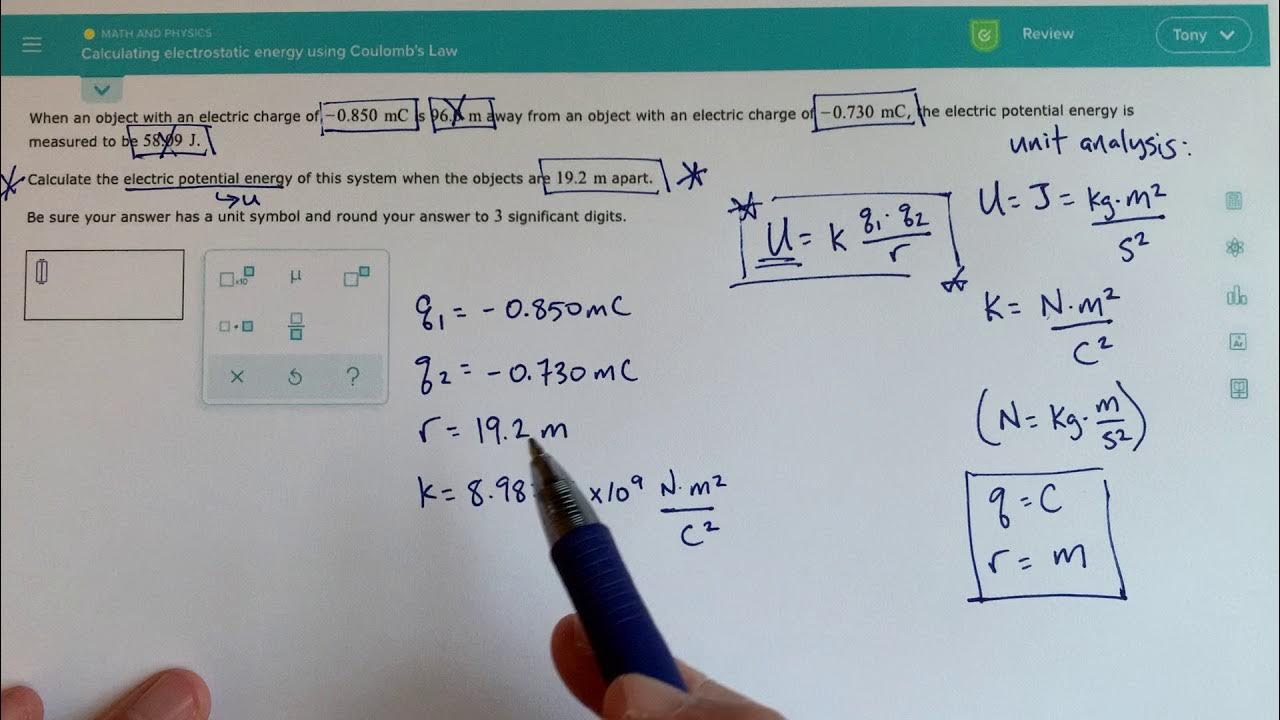 MATH AND PHYSICS
Calculating electrostatic energy using Coulomb's Law
Review
Tony
When an object with an electric charge of −0.850 mC is m away from an object with an electric charge of −0.730 mC, the electric potential energy is
measured to be J.
Calculate the electric potential energy of this system when the objects are 19.2 m apart.
→ U
Be sure your answer has a unit symbol and round your answer to 3 significant digits.
□x10□
μ
□□
□·□
□/□
×
?
q₁ = -0.850 mC
q₂ = -0.730 mC
r = 19.2 m
K = 8.98 x10⁹ N·m²/C²
U = K q₁·q₂/r
unit analysis:
U = J = kg·m²/s²
K = N·m²/C²
(N = kg·m/s²)
q = C
r = m
Ar